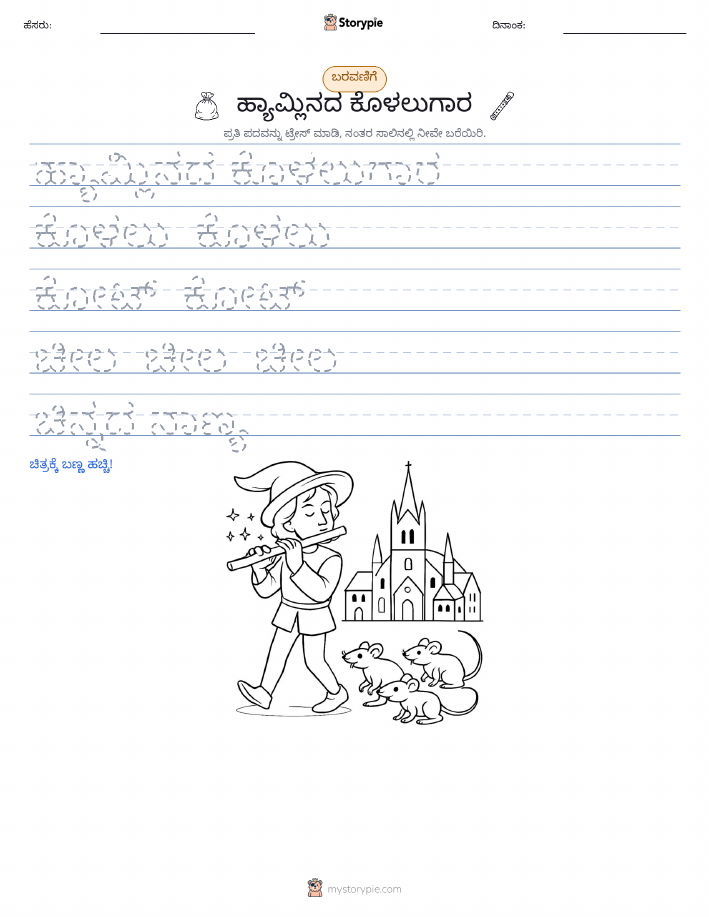 ಹೆಸರು:
Storypie
ದಿನಾಂಕ:
ಬರವಣಿಗೆ
ಹ್ಯಾಮ್ಲಿನದ ಕೊಳಲುಗಾರ
ಪ್ರತಿ ಪದವನ್ನು ಟ್ರೇಸ್ ಮಾಡಿ, ನಂತರ ಸಾಲಿನಲ್ಲಿ ನೀವೇ ಬರೆಯಿರಿ.
ಹ್ಯಾಮ್ಲಿನದ ಕೊಳಲುಗಾರ
ಕೊಳಲು ಕೊಳಲು
ಕೋಟ್ ಕೋಟ್
ಚೀಲ ಚೀಲ ಚೀಲ
ಚಿನ್ನದ ನಾಣ್ಯ
ಚಿತ್ರಕ್ಕೆ ಬಣ್ಣ ಹಚ್ಚಿ!
mystorypie.com